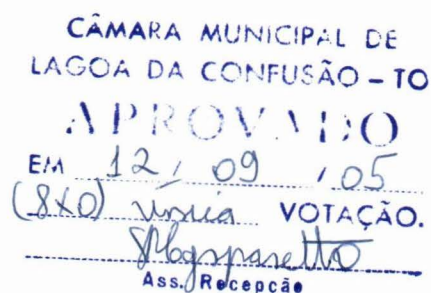 CÂMARA MUNICIPAL DE
LAGOA DA CONFUSÃO – TO
APROVADO
EM 12 / 09 / 05
(8x0) única VOTAÇÃO.
Ass. Recepção